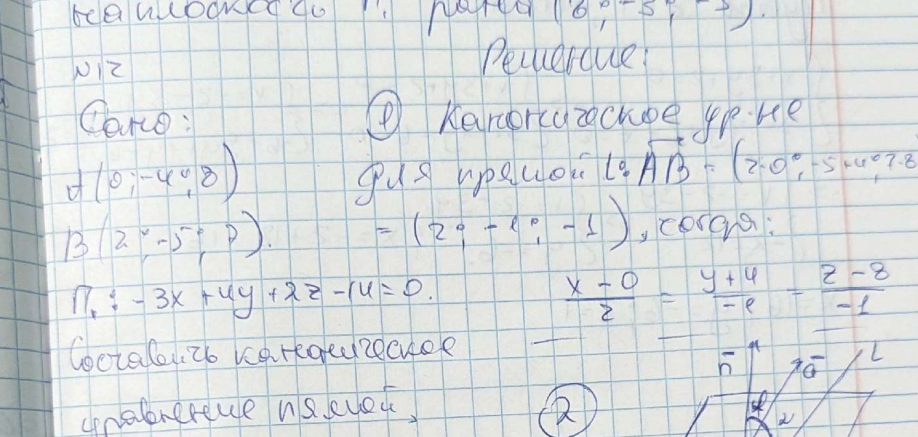 на плоскость П₁ равна (8; -5; -3).
N12
Решение:
Дано:
① Каноническое ур-не
A(0; -4; 8)
для прямой L: AB = (2-0; -5+4; 7-8)
B(2; -5; 7).
= (2; -1; -1), тогда:
П₁: -3x + 4y + 2z - 14 = 0.
x - 0 / 2 = y + 4 / -1 = z - 8 / -1
Составить каноническое
n̄ ā L
уравнение прямой,
②